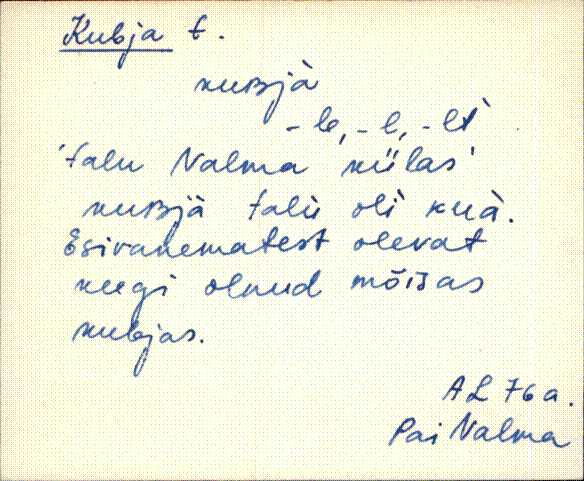 Kubja t.
kuʙjà
-le, -l, -lt
talu Nalma külas
kuʙjà talu oli kuà.
Esivanematest olevat
keegi olnud mõisas
kubjas.
AL 76 a.
Pai Nalma